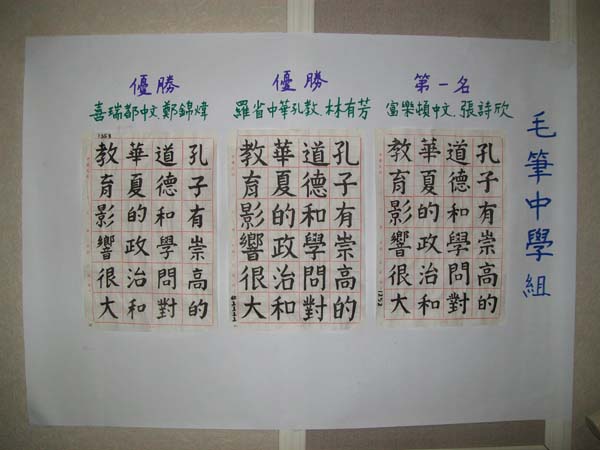 毛筆中學組
第一名
富樂頓中文.張詩欣
孔子有崇高的
道德和學問對
華夏的政治和
教育影響很大
1352
優勝
羅省中華孔教.林有芳
孔子有崇高的
道德和學問對
華夏的政治和
教育影響很大
優勝
喜瑞都中文.鄭錦煒
1353
孔子有崇高的
道德和學問對
華夏的政治和
教育影響很大